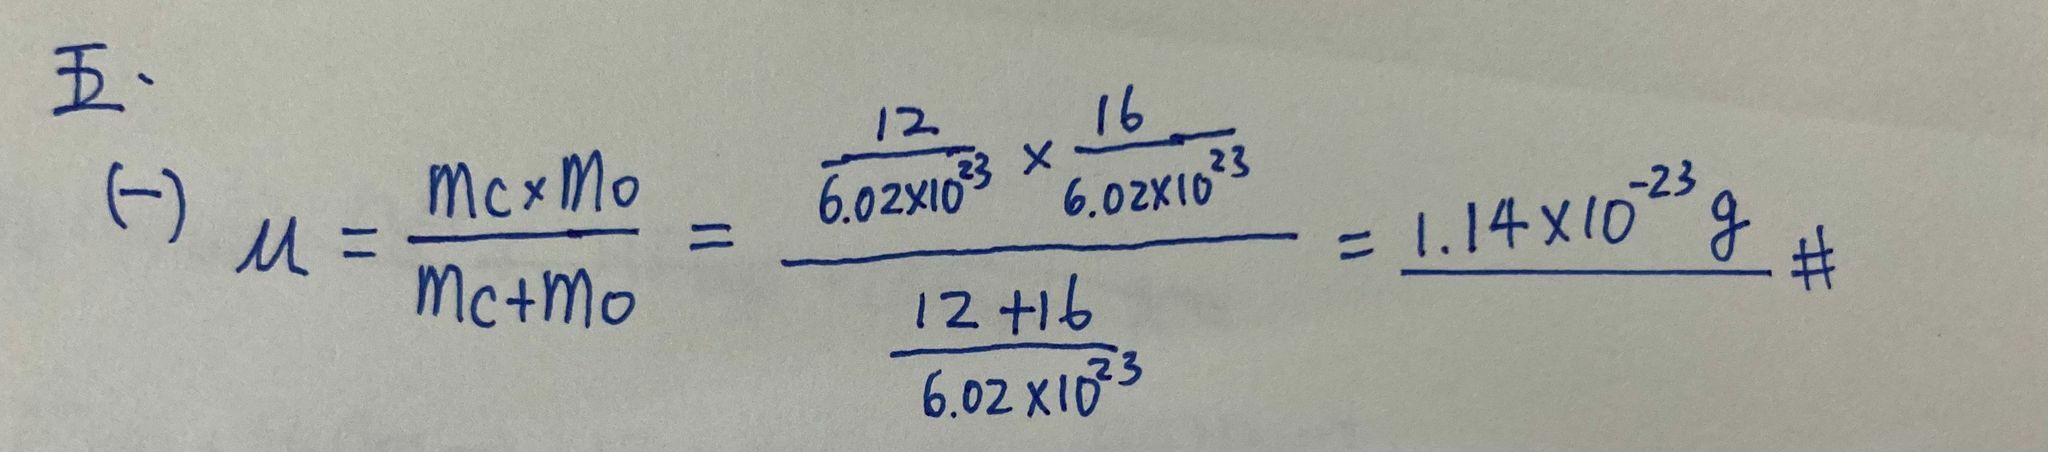 五.
(一) μ = mc×mo / mc+mo = 12/6.02×10²³ × 16/6.02×10²³ / 12+16/6.02×10²³ = 1.14×10⁻²³ g #